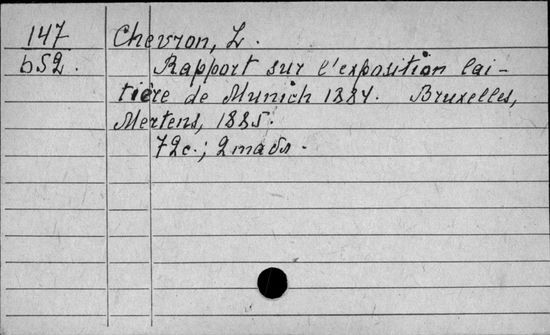 147
b52.
Chevron, L.
Rapport sur l'exposition lai-
tière de Munich 1884. Bruxelles,
Mertens, 1885.
72c.;